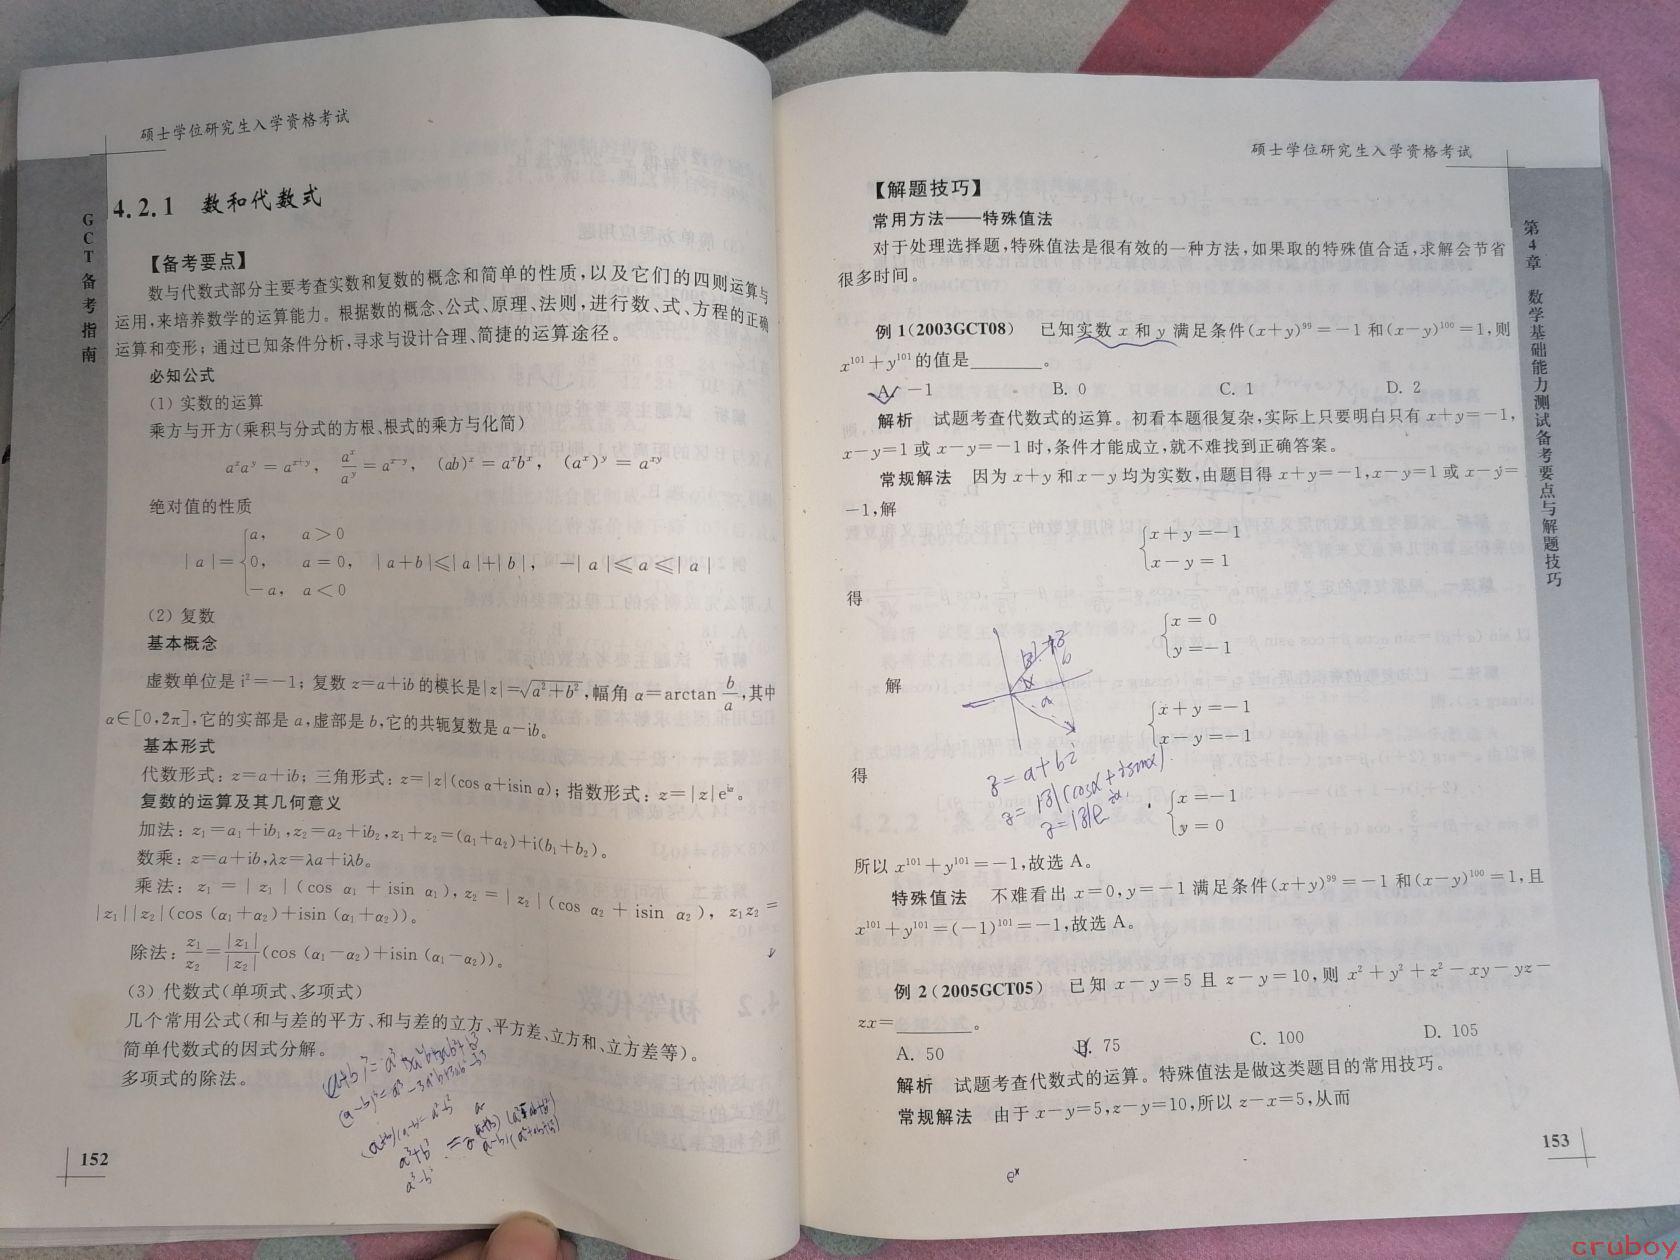 硕士学位研究生入学资格考试
GCT备考指南
4.2.1 数和代数式
【备考要点】
数与代数式部分主要考查实数和复数的概念和简单的性质,以及它们的四则运算与
运用,来培养数学的运算能力。根据数的概念、公式、原理、法则,进行数、式、方程的正确
运算和变形;通过已知条件分析,寻求与设计合理、简捷的运算途径。
必知公式
(1) 实数的运算
乘方与开方(乘积与分式的方根、根式的乘方与化简)
aˣaʸ = aˣ⁺ʸ, aˣ/aʸ = aˣ⁻ʸ, (ab)ˣ = aˣbˣ, (aˣ)ʸ = aˣʸ
绝对值的性质
|a| = { a, a>0
0, a=0, |a+b|≤|a|+|b|, −|a|≤a≤|a|
−a, a<0
(2) 复数
基本概念
虚数单位是 i²=−1;复数 z=a+ib 的模长是|z|=√(a²+b²),幅角 α=arctan b/a,其中
α∈[0,2π],它的实部是 a,虚部是 b,它的共轭复数是 a−ib。
基本形式
代数形式:z=a+ib;三角形式:z=|z|(cos α+isin α);指数形式:z=|z|eⁱᵅ。
复数的运算及其几何意义
加法:z₁=a₁+ib₁,z₂=a₂+ib₂,z₁+z₂=(a₁+a₂)+i(b₁+b₂)。
数乘:z=a+ib,λz=λa+iλb。
乘法:z₁=|z₁|(cos α₁+isin α₁),z₂=|z₂|(cos α₂+isin α₂),z₁z₂=
|z₁||z₂|(cos (α₁+α₂)+isin (α₁+α₂))。
除法:z₁/z₂=|z₁|/|z₂|(cos (α₁−α₂)+isin (α₁−α₂))。
(3) 代数式(单项式、多项式)
几个常用公式(和与差的平方、和与差的立方、平方差、立方和、立方差等)。
简单代数式的因式分解。
多项式的除法。
(a+b)³=a³+3a²b+3ab²+b³
(a−b)³=a³−3a²b+3ab²−b³
(a+b)(a−b)=a²−b²
a³+b³
a³−b³
152
硕士学位研究生入学资格考试
第4章 数学基础能力测试备考要点与解题技巧
【解题技巧】
常用方法——特殊值法
对于处理选择题,特殊值法是很有效的一种方法,如果取的特殊值合适,求解会节省
很多时间。
例 1(2003GCT08) 已知实数 x 和 y 满足条件(x+y)⁹⁹=−1 和(x−y)¹⁰⁰=1,则
x¹⁰¹+y¹⁰¹的值是______。
A. −1 B. 0 C. 1 D. 2
解析 试题考查代数式的运算。初看本题很复杂,实际上只要明白只有 x+y=−1,
x−y=1 或 x−y=−1 时,条件才能成立,就不难找到正确答案。
常规解法 因为 x+y 和 x−y 均为实数,由题目得 x+y=−1,x−y=1 或 x−y=
−1,解
{ x+y=−1
x−y=1
得
{ x=0
y=−1
解
{ x+y=−1
x−y=−1
得
{ x=−1
y=0
z=a+bi
z=|z|(cosα+isinα)
z=|z|eⁱᵅ
所以 x¹⁰¹+y¹⁰¹=−1,故选 A。
特殊值法 不难看出 x=0,y=−1 满足条件(x+y)⁹⁹=−1 和(x−y)¹⁰⁰=1,且
x¹⁰¹+y¹⁰¹=(−1)¹⁰¹=−1,故选 A。
例 2(2005GCT05) 已知 x−y=5 且 z−y=10,则 x²+y²+z²−xy−yz−
zx=______。
A. 50 B. 75 C. 100 D. 105
解析 试题考查代数式的运算。特殊值法是做这类题目的常用技巧。
常规解法 由于 x−y=5,z−y=10,所以 z−x=5,从而
eˣ
153
cruboy